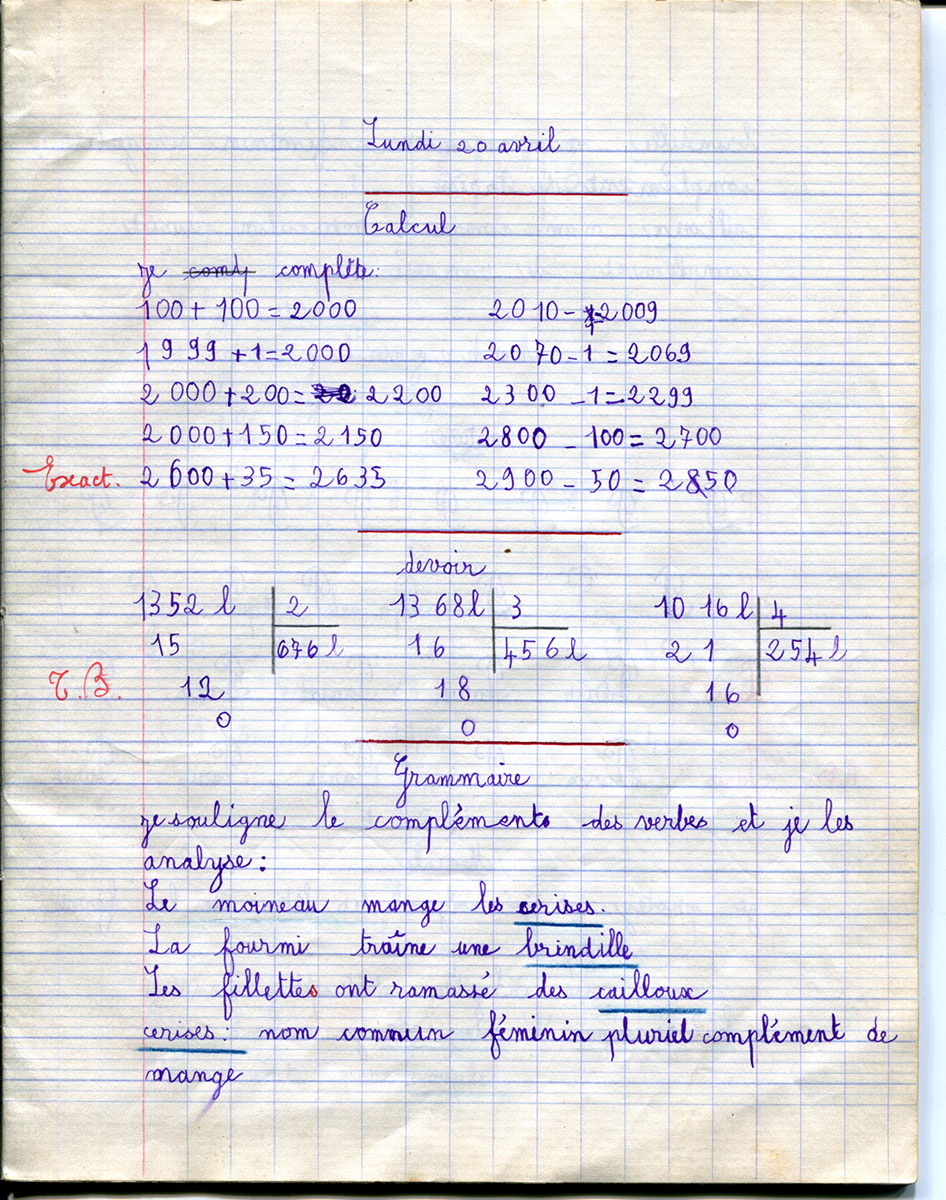 Lundi 20 avril
Calcul
je comp complète:
100 + 100 = 2000 2010 - 1 = 2009
1999 + 1 = 2000 2070 - 1 = 2069
2000 + 200 = 2200 2300 - 1 = 2299
2000 + 150 = 2150 2800 - 100 = 2700
Exact. 2600 + 35 = 2635 2900 - 50 = 2850
devoir
1352 l 2 1368 l 3 1016 l 4
15 676 l 16 456 l 21 254 l
T.B. 12 18 16
0 0 0
Grammaire
je souligne le compléments des verbes et je les
analyse :
Le moineau mange les cerises.
La fourmi traîne une brindille
Les fillettes ont ramassé des cailloux
cerises : nom commun féminin pluriel complément de
mange